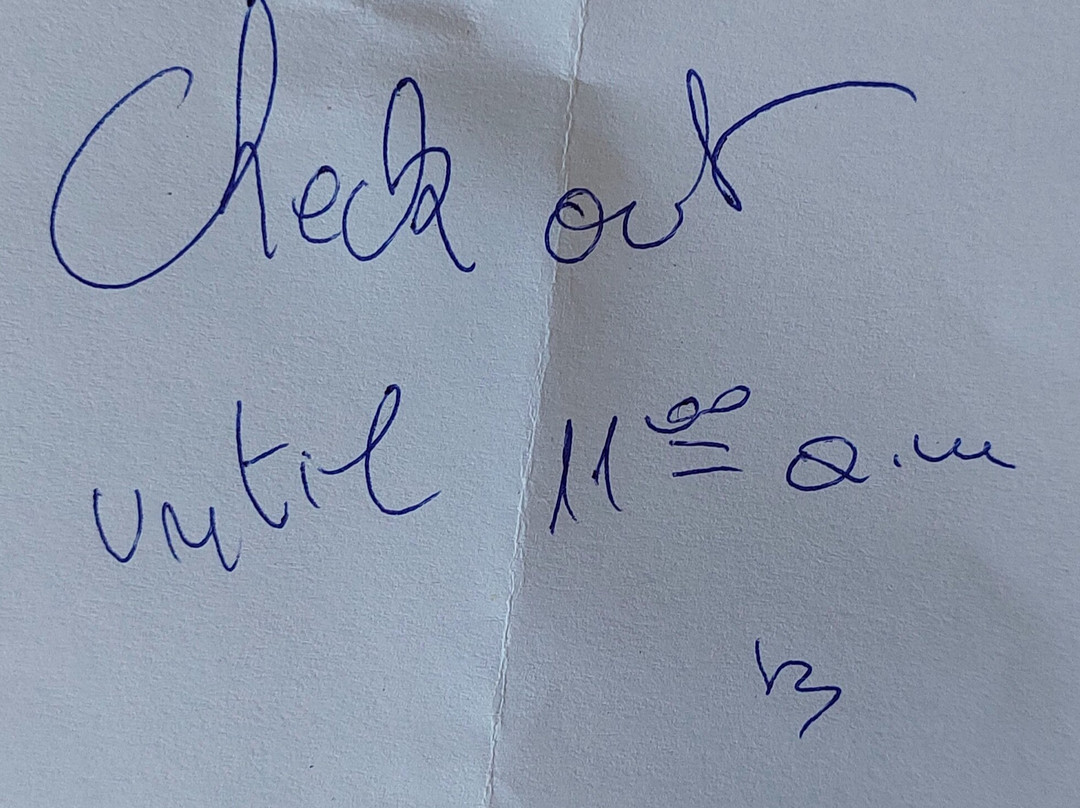 Check out
until 11⁰⁰ a.m